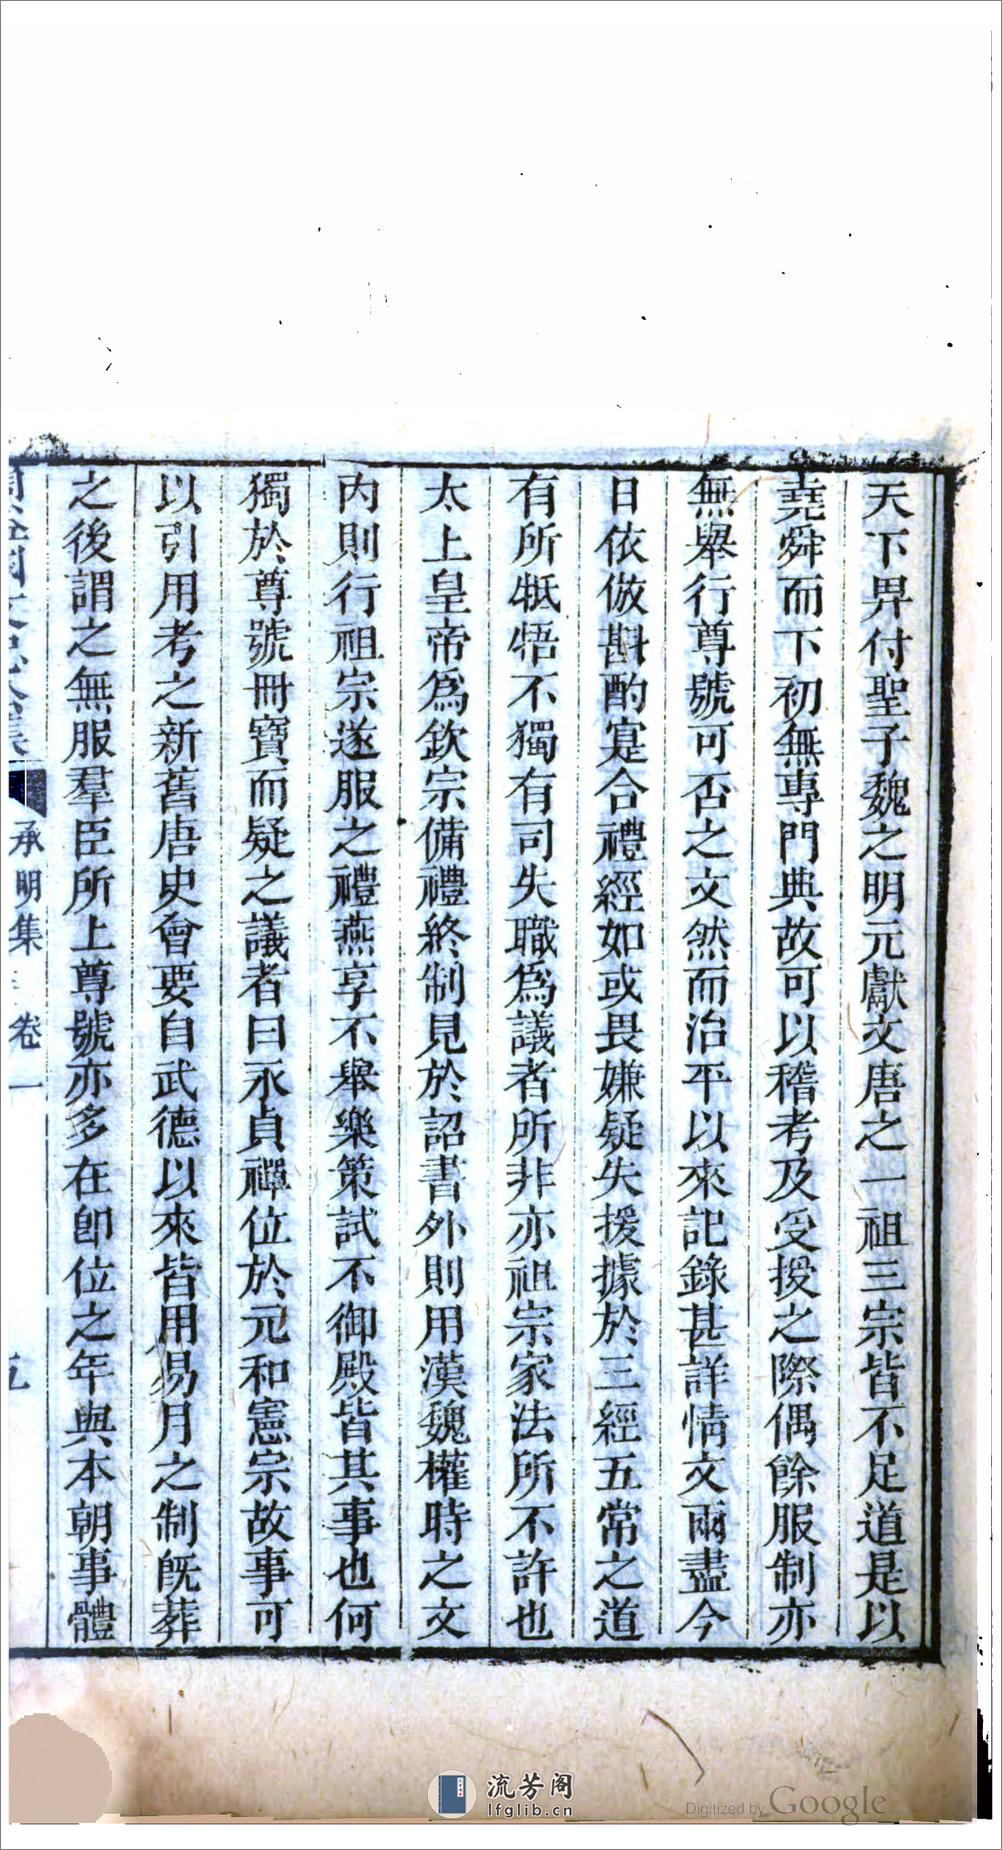 天下畀付聖子魏之明元獻文唐之一祖三宗皆不足道是以
堯舜而下初無專門典故可以稽考及受授之際偶餘服制亦
無舉行尊號可否之文然而治平以來記錄甚詳情文兩盡今
日依倣斟酌寔合禮經如或畏嫌疑失援據於三經五常之道
有所牴牾不獨有司失職為議者所非亦祖宗家法所不許也
太上皇帝為欽宗備禮終制見於詔書外則用漢魏權時之文
內則行祖宗遂服之禮燕享不舉樂策試不御殿皆其事也何
獨於尊號冊寶而疑之議者曰永貞禪位於元和憲宗故事可
以引用考之新舊唐史會要自武德以來皆用易月之制旣葬
之後謂之無服羣臣所上尊號亦多在卽位之年與本朝事體
承明集
卷一
五
流芳阁
lfglib.cn
Digitized by Google